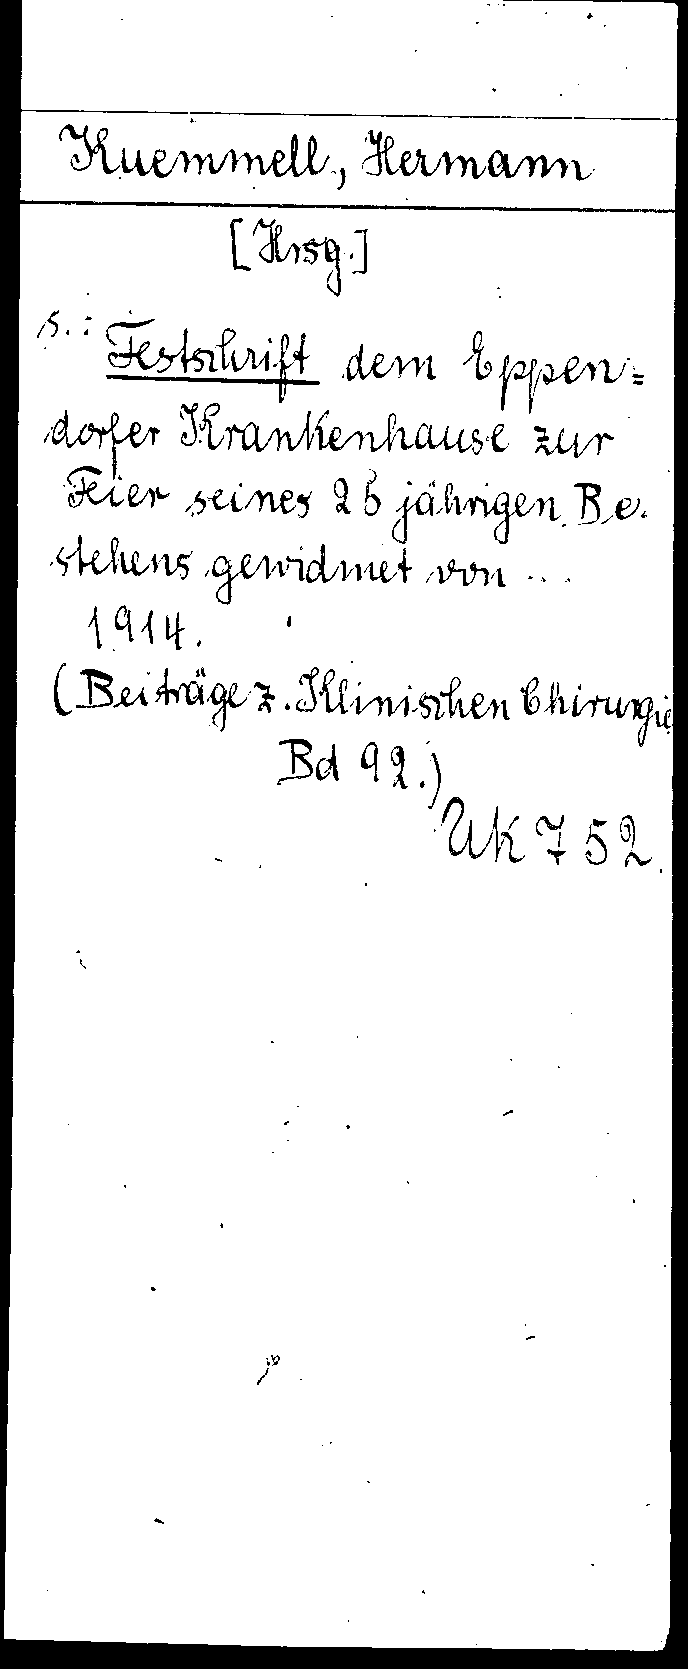 Kuemmell, Hermann
[Hrsg.]
s.: Festschrift dem Eppen=
dorfer Krankenhause zur
Feier seines 25 jährigen Be-
stehens gewidmet von ...
1914.
(Beiträge z. Klinischen Chirurgie
Bd 92.)
UK 752.